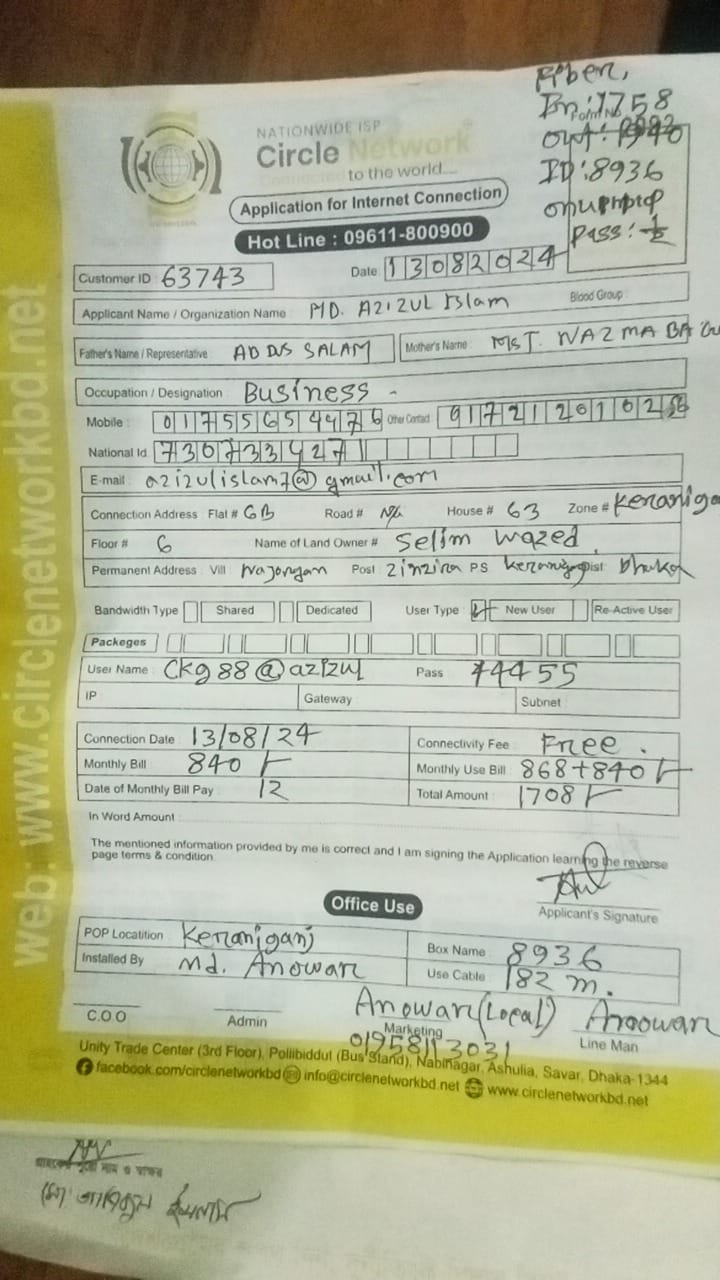 Fiber,
In: 1758
Out:
ID: 8936
Pass:
NATIONWIDE ISP
Circle Network
Connected to the world....
Application for Internet Connection
Hot Line : 09611-800900
Customer ID : 63743 Date 13082024
Applicant Name / Organization Name MD. AZIZUL Islam Blood Group :
Father's Name / Representative : ABDUS SALAM Mother's Name : MST. NAZMA
Occupation / Designation Business -
Mobile : 01755654476 Other Contact
National Id. 730733427
E-mail : azizulislam7@gmail.com
Connection Address Flat # 6B Road # N/A House # 63 Zone # Keraniga
Floor # 6 Name of Land Owner # Selim wazed
Permanent Address Vill Post zinzira PS Dist Dhaka
Bandwidth Type Shared Dedicated User Type New User Re-Active User
Packeges
User Name : Ckg88@azizul Pass 74455
IP Gateway Subnet
Connection Date 13/08/24 Connectivity Fee Free .
Monthly Bill 840/- Monthly Use Bill 868+840/-
Date of Monthly Bill Pay : 12 Total Amount : 1708/-
In Word Amount :
The mentioned information provided by me is correct and I am signing the Application learning the reverse
page terms & condition.
Applicant's Signature
Office Use
POP Locatition Keraniganj Box Name 8936
Installed By Md. Anowar Use Cable 182 m.
Anowar (Local) Anowar
C.O.O Admin Marketing Line Man
Unity Trade Center (3rd Floor), Pollibiddut (Bus Stand), Nabinagar, Ashulia, Savar, Dhaka-1344
facebook.com/circlenetworkbd info@circlenetworkbd.net www.circlenetworkbd.net
web: www.circlenetworkbd.net